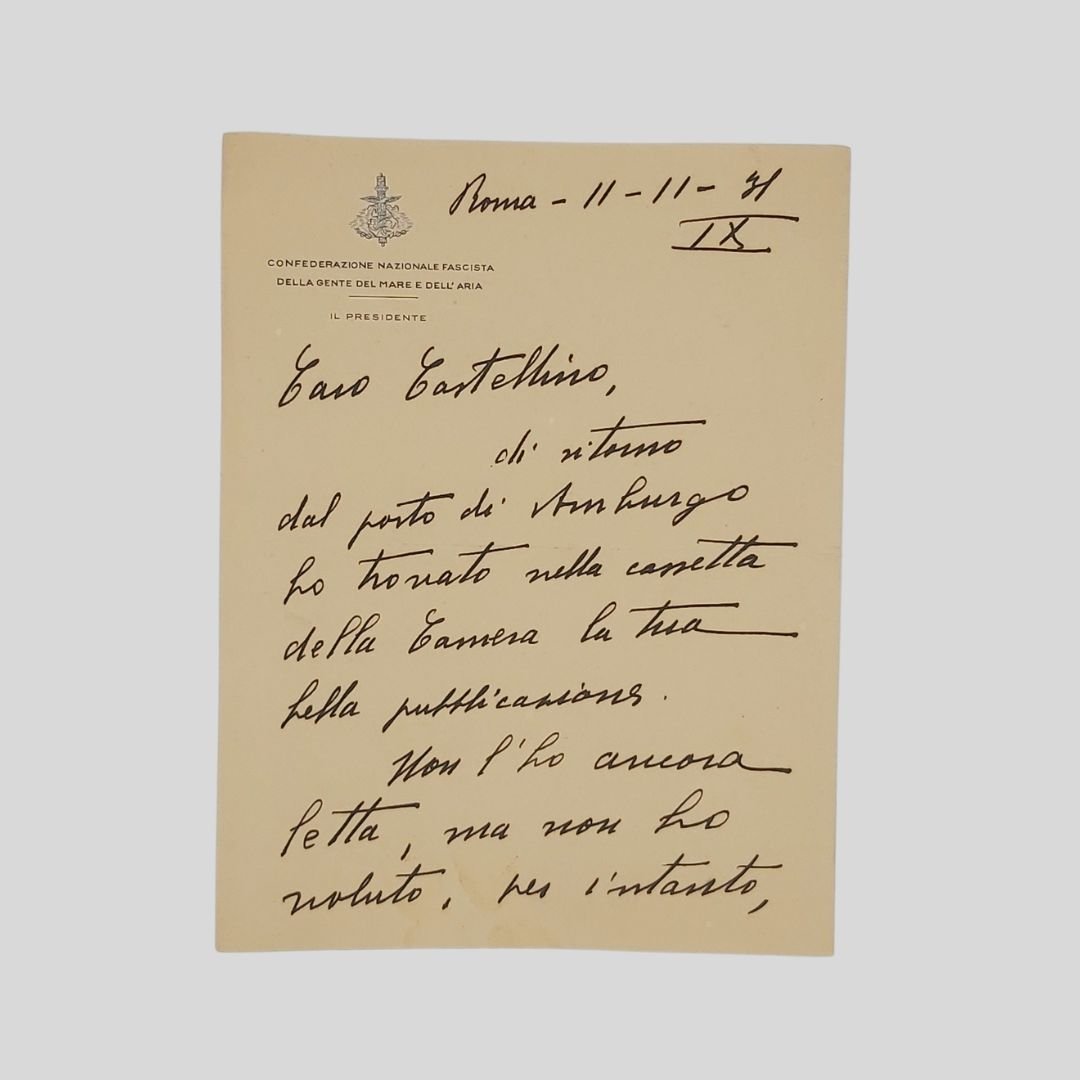 Roma - 11 - 11 - 31
IX
CONFEDERAZIONE NAZIONALE FASCISTA
DELLA GENTE DEL MARE E DELL'ARIA
IL PRESIDENTE
Caro Castellino,
di ritorno
dal porto di Amburgo
ho trovato nella cassetta
della Camera la tua
bella pubblicazione.
Non l'ho ancora
letta, ma non ho
voluto, per intanto,